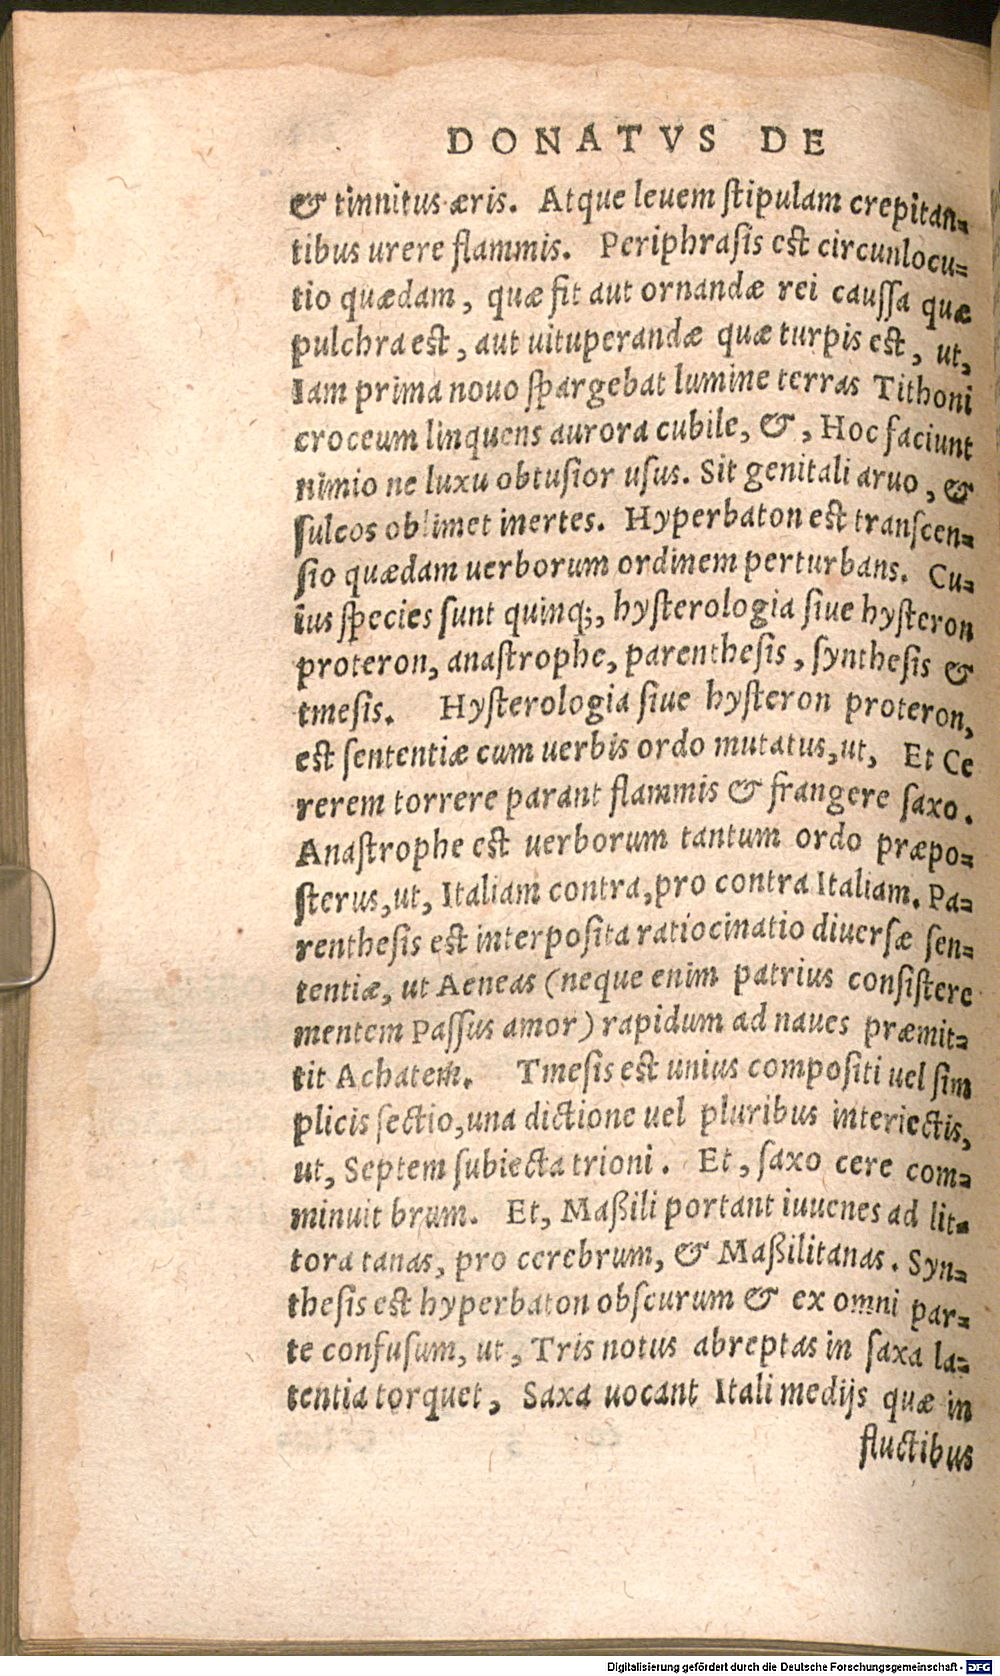 DONATVS DE
& tinnitus æris. Atque leuem ſtipulam crepitan-
tibus urere flammis. Periphraſis eſt circunlocu-
tio quædam, quæ fit aut ornandæ rei cauſſa quæ
pulchra eſt, aut uituperandæ quæ turpis eſt, ut,
Iam prima nouo ſpargebat lumine terras Tithoni
croceum linquens aurora cubile, &, Hoc faciunt
nimio ne luxu obtuſior uſus. Sit genitali aruo, &
ſulcos oblimet inertes. Hyperbaton eſt tranſcen-
ſio quædam uerborum ordinem perturbans. Cu-
ius ſpecies ſunt quinq;, hyſterologia ſiue hyſteron
proteron, anaſtrophe, parentheſis, ſyntheſis &
tmeſis. Hyſterologia ſiue hyſteron proteron,
eſt ſententiæ cum uerbis ordo mutatus, ut, Et Ce
rerem torrere parant flammis & frangere ſaxo.
Anaſtrophe eſt uerborum tantum ordo præpo-
ſterus, ut, Italiam contra, pro contra Italiam. Pa-
rentheſis eſt interpoſita ratiocinatio diuerſæ ſen-
tentiæ, ut Aeneas (neque enim patrius conſiſtere
mentem Paſſus amor) rapidum ad naues præmit-
tit Achatem. Tmeſis eſt unius compoſiti uel ſim
plicis ſectio, una dictione uel pluribus interiectis,
ut, Septem ſubiecta trioni. Et, ſaxo cere com-
minuit brum. Et, Maßili portant iuuenes ad lit-
tora tanas, pro cerebrum, & Maßilitanas. Syn-
theſis eſt hyperbaton obſcurum & ex omni par-
te confuſum, ut, Tris notus abreptas in ſaxa la-
tentia torquet, Saxa uocant Itali medijs quæ in
fluctibus
Digitalisierung gefördert durch die Deutsche Forschungsgemeinschaft - DFG